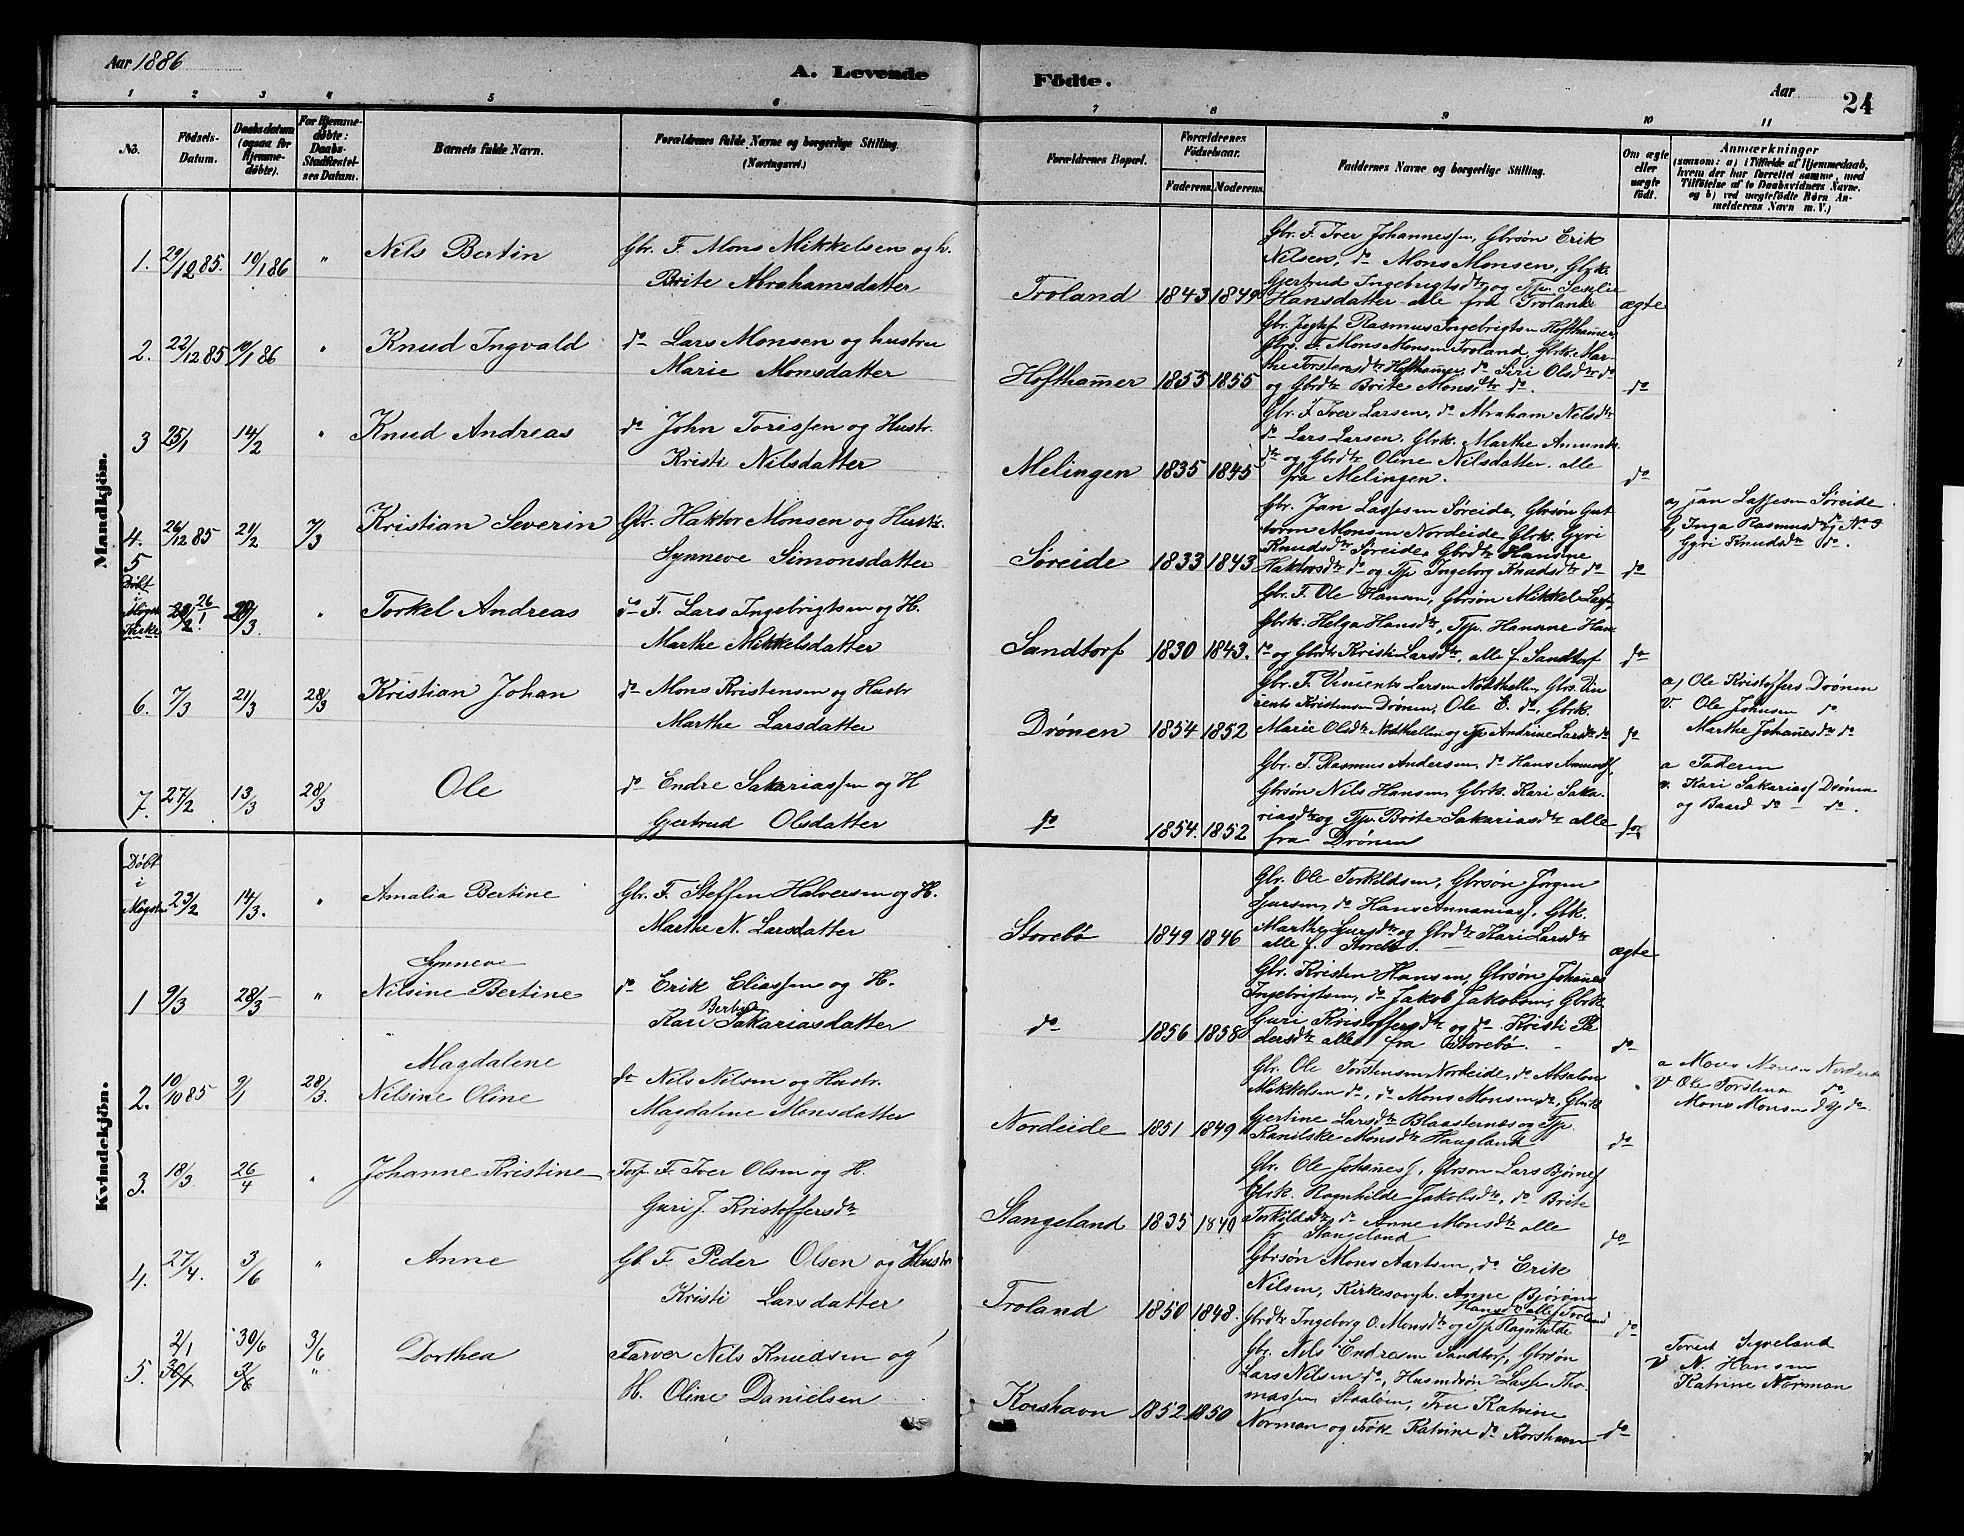 Aar 1886
A. Levende
Födte.
Aar
24
1 2 3 4 5 6 7 8 9 10 11
No.
Födsels-Datum.
Daabsdatum (ogsaa for Hjemme-døbte).
For Hjemme-døbte: Daabs-Stadfæstel-ses Datum.
Barnets fulde Navn.
Forældrenes fulde Navne og borgerlige Stilling. (Næringsvei.)
Forældrenes Bopæl.
Forældrenes Födselsaar.
Faderens. Moderens.
Faddernes Navne og borgerlige Stilling.
Om ægte eller uægte födt.
Anmærkninger
(saasom: a) i Tilfælde af Hjemmedaab, hvem der har forrettet samme, med Tilføielse af to Daabsvidners Navne, og b) ved uægtefödte Børn Anmelderens Navn m. V.)
Mandkjön.
1. 29/12 85. 10/1 86 " Nils Bertin
Gbr. F. Mons Mikkelsen og h.
Brite Abrahamsdatter
Troland 1843 1849
Gbr. F. Iver Johannessen, Gbrsøn Erik
Nilsen, do Mons Monsen, Gbrk.
Gjertrud Ingebrigtsdtr og Tp.
Hansdatter alle fra Troland ægte
2. 22/12 85 10/1 86 " Knud Ingvald
do Lars Monsen og hustru
Marie Monsdatter
Hofthammer 1855 1855
Gbr. Rasmus Ingebrigtsen Hofthammer,
Gbr. F. Mons Monsen Troland, Gbrk. Mar-
the Torstensdtr Hofthammer, do Siri Olsdtr do
og Gbrdtr Brite Monsdtr do. do
3 25/1 14/2 " Knud Andreas
do John Torissen og Hustr.
Kristi Nilsdatter
Melingen 1835 1845
Gbr. F. Iver Larsen, do Abraham Nils
do Lars Larsen, Gbrk. Marthe Amunds
dtr og Gbrdtr Oline Nilsdatter. alle
fra Melingen. do
4. 26/12 85 21/2 7/3 Kristian Severin
Gbr. Haktor Monsen og Hustr.
Synneve Simonsdatter
Søreide 1833 1843
Gbr. Jan Lassesen Søreide, Gbrsøn Gut-
torm Monsen Nordeide, Gbrk. Gyri
Knudsdtr Søreide, Gbrdtr Hansine
Haktorsdtr do og Tp Ingeborg Knudsdtr do do
a) Jan Lassesen Søreide
b) Inga Rasmusdtr
Gyri Knudsdtr do.
5
Døbt i Møgster Kirke
26/1 28/3. " Torkel Andreas
do F. Lars Ingebrigtsen og H.
Marthe Mikkelsdatter
Sandtorf 1830 1843.
Gbr. F. Ole Hansen, Gbrsøn Mikkel Lars
Gbrk. Helga Hansdtr, Tp. Hansine Han
do og Gbrdtr Kristi Larsdtr, alle f. Sandtorf do
6. 7/3 21/3 28/3 Kristian Johan
do Mons Kristensen og Hustr
Marthe Larsdatter
Drönen 1854 1852
Gbr. F. Vincents Larsen, Gbrs. Vin-
cents Kristensen Drönen, Ole E. do, Gbrk.
Marie Olsdtr og Tp Andrine Larsdtr do do
a) Ole Kristoffers Drönen
V. Ole Johnsen do
Marthe Johannesdtr do
7. 27/2 13/3 28/3 Ole
do Endre Sakariassen og H
Gjertrud Olsdatter
do 1854. 1852
Gbr. F. Rasmus Andersen, do Hans Amunds,
Gbrsøn Nils Hansen, Gbrk. Kari Saka-
riasdtr og Tp. Brite Sakariasdtr alle
fra Drönen do
a Faderen
v. Kari Sakarias Drönen
og Baard do - do.
Kvindekjön.
Døbt i Møgster
23/2 14/3. " Amalia Bertine
Gbr. F. Steffen Halversen og H.
Marthe N. Larsdatter
Storebö 1849 1846
Gbr. Ole Torkildsen, Gbrsøn Jörgen
Sjursen, do Hans Annanias, Gbk.
Marthe Sjursdtr og Gbrdtr Kari Larsdtr
alle f. Storebö. ægte
1 9/3 28/3 "
Synneve
Nilsine Bertine
do Erik Eliassen og H.
Kari Bertine Sakariasdatter
do 1856 1858
Gbr. Kristen Hansen, Gbrsøn Johannes
Ingebrigtsen, do Jakob Jakobsen, Gbrk
Guri Kristoffersdtr og do Kristi Pe
dersdtr alle fra Storebö. do
2. 10/10 85 9/1 28/3
Magdalene
Nilsine Oline
do Nils Nilsen og Hustr.
Magdalene Monsdatter
Nordeide 1851 1849
Gbr. Ole Torstensen Nordeide, do Absalon
Mikkelsen do, do Mons Monsen do, Gbrk
Gjertine Larsdtr Blaasternæs og Tp.
Ranilske Monsdtr Haugland do
a Mons Monsen Nordeide
V Ole Torstensen do
Mons Monsen do
3. 18/3. 26/4 " Johanne Kristine
Torp. F. Iver Olsen og H.
Guri J. Kristoffersdtr
Stangeland 1835 1840
Gbr. Ole Johannes, Gbrsøn Lars Björnes
Gbrk. Ragnhilde Jakobsdtr, do Brite
Torkildsdtr do Anne Monsdtr alle
fr Stangeland do
4. 27/4. 3/6 " Anne
Gb. F. Peder Olsen og Hustr
Kristi Larsdatter
Troland 1850 1848.
Gbrsøn Mons Aartsen, do Erik
Nilsen, Kirkesangr. Anne Bjoröns
Hansdtr alle f. Troland
Gbrdtr Ingeborg O. Monsdtr og Tp Ragnhilde do
5. 2/1 30/6 3/6 Dorthea
30/4 3/6 "
Farver Nils Knudsen og
H. Oline Danielsen
Korshavn 1852 1850
Gbr. Nils Endresen Sandtorf, Gbrsøn
Lars Nilsen do, Husmdsøn Lasse Tho-
massen, Frue Katrine
Norman og Frøk Katrine do Korshavn do
V N. Hansen
Katrine Norman